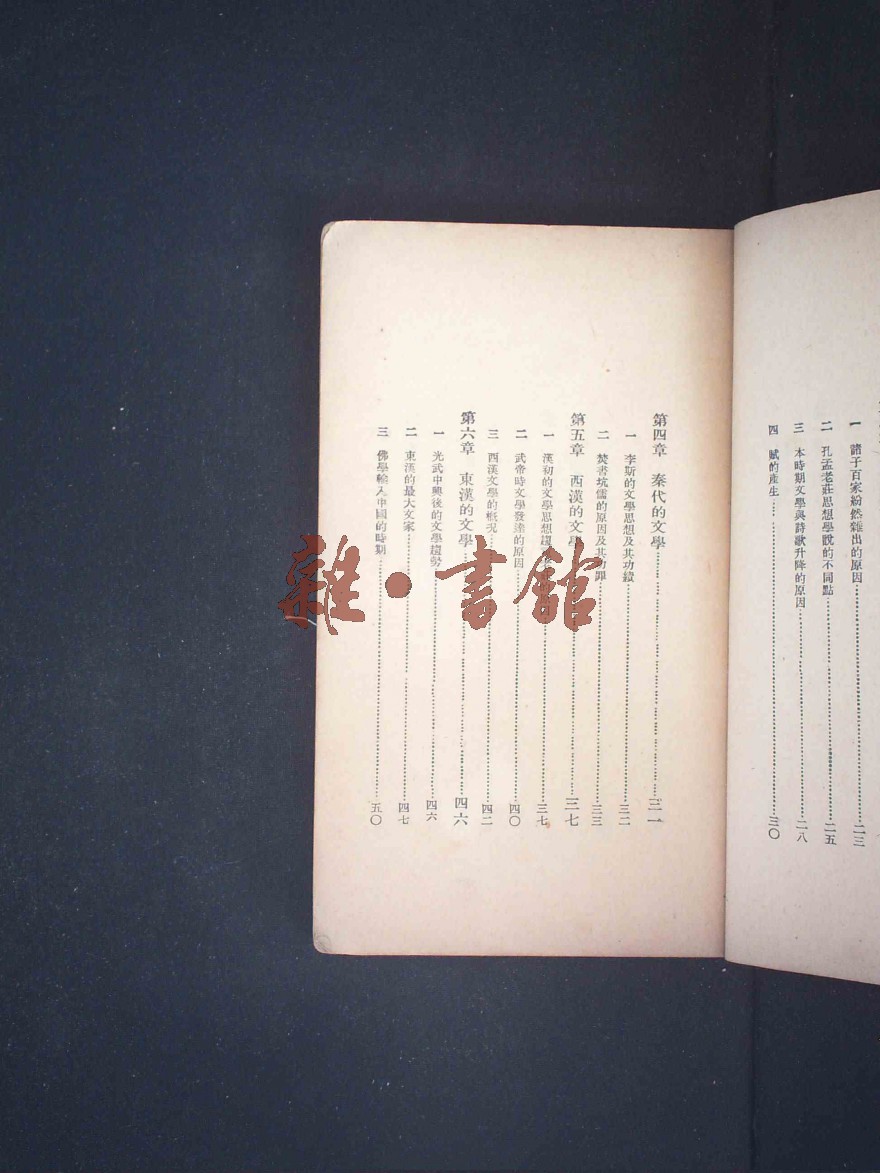 一　諸子百家紛然雜出的原因……二三
二　孔孟老莊思想學說的不同點……二五
三　本時期文學與詩歌升降的原因……二八
四　賦的產生……三〇
第四章　秦代的文學……三一
一　李斯的文學思想及其功績……三二
二　焚書坑儒的原因及其功罪……三三
第五章　西漢的文學……三七
一　漢初的文學思想趨……三七
二　武帝時文學發達的原因……四〇
三　西漢文學的概況……四二
第六章　東漢的文學……四六
一　光武中興後的文學趨勢……四六
二　東漢的最大文家……四七
三　佛學輸入中國的時期……五〇
雜·書館